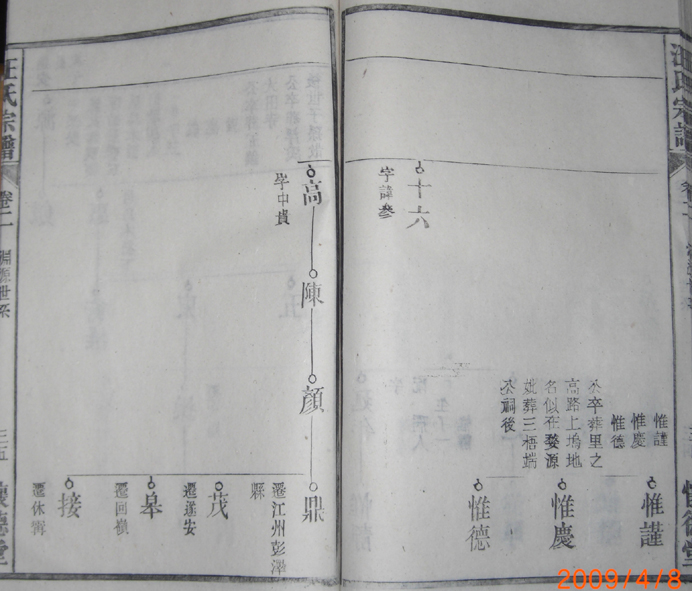 汪氏宗譜
卷二
惟謹
惟慶
惟德
公卒葬里之
高路上塢地
名似在婺源
妣葬三梧端
公祠後
惟謹
惟慶
惟德
十六
字諱參
高
字中貴
陳
顔
鼎
遷江州彭澤
縣
茂
遷遂安
皋
遷回嶺
接
遷休寧
汪氏宗譜
卷二
淵源世系
三五
懷德堂
2009/4/8